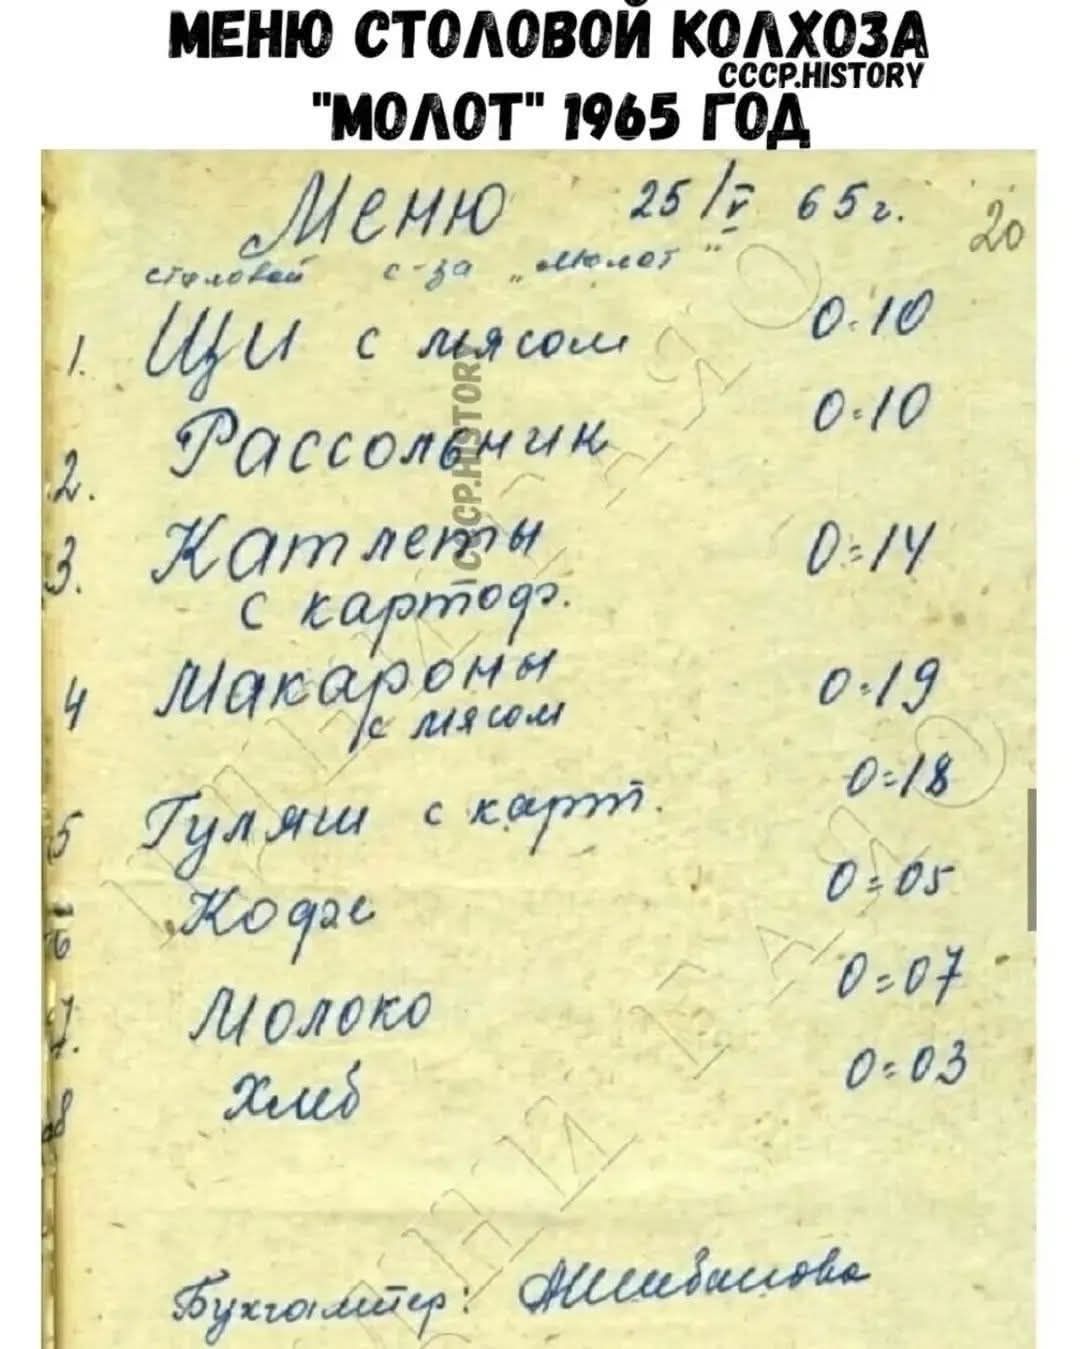 МЕНЮ СТОЛОВОЙ КОЛХОЗА
СССР.HISTORY
"МОЛОТ" 1965 ГОД
Меню 25/V 65 г.
20
столовой с-за „Молот"
1. Щи с мясом 0=10
2. Рассольник 0=10
3. Катлеты 0=14
с картоф.
4 Макароны 0=19
с мясом
5 Гуляш с карт. 0=18
6 Кофе 0=05
7. Молоко 0=07
8 Хлеб 0=03
СССР.HISTORY
Бухгалтер: